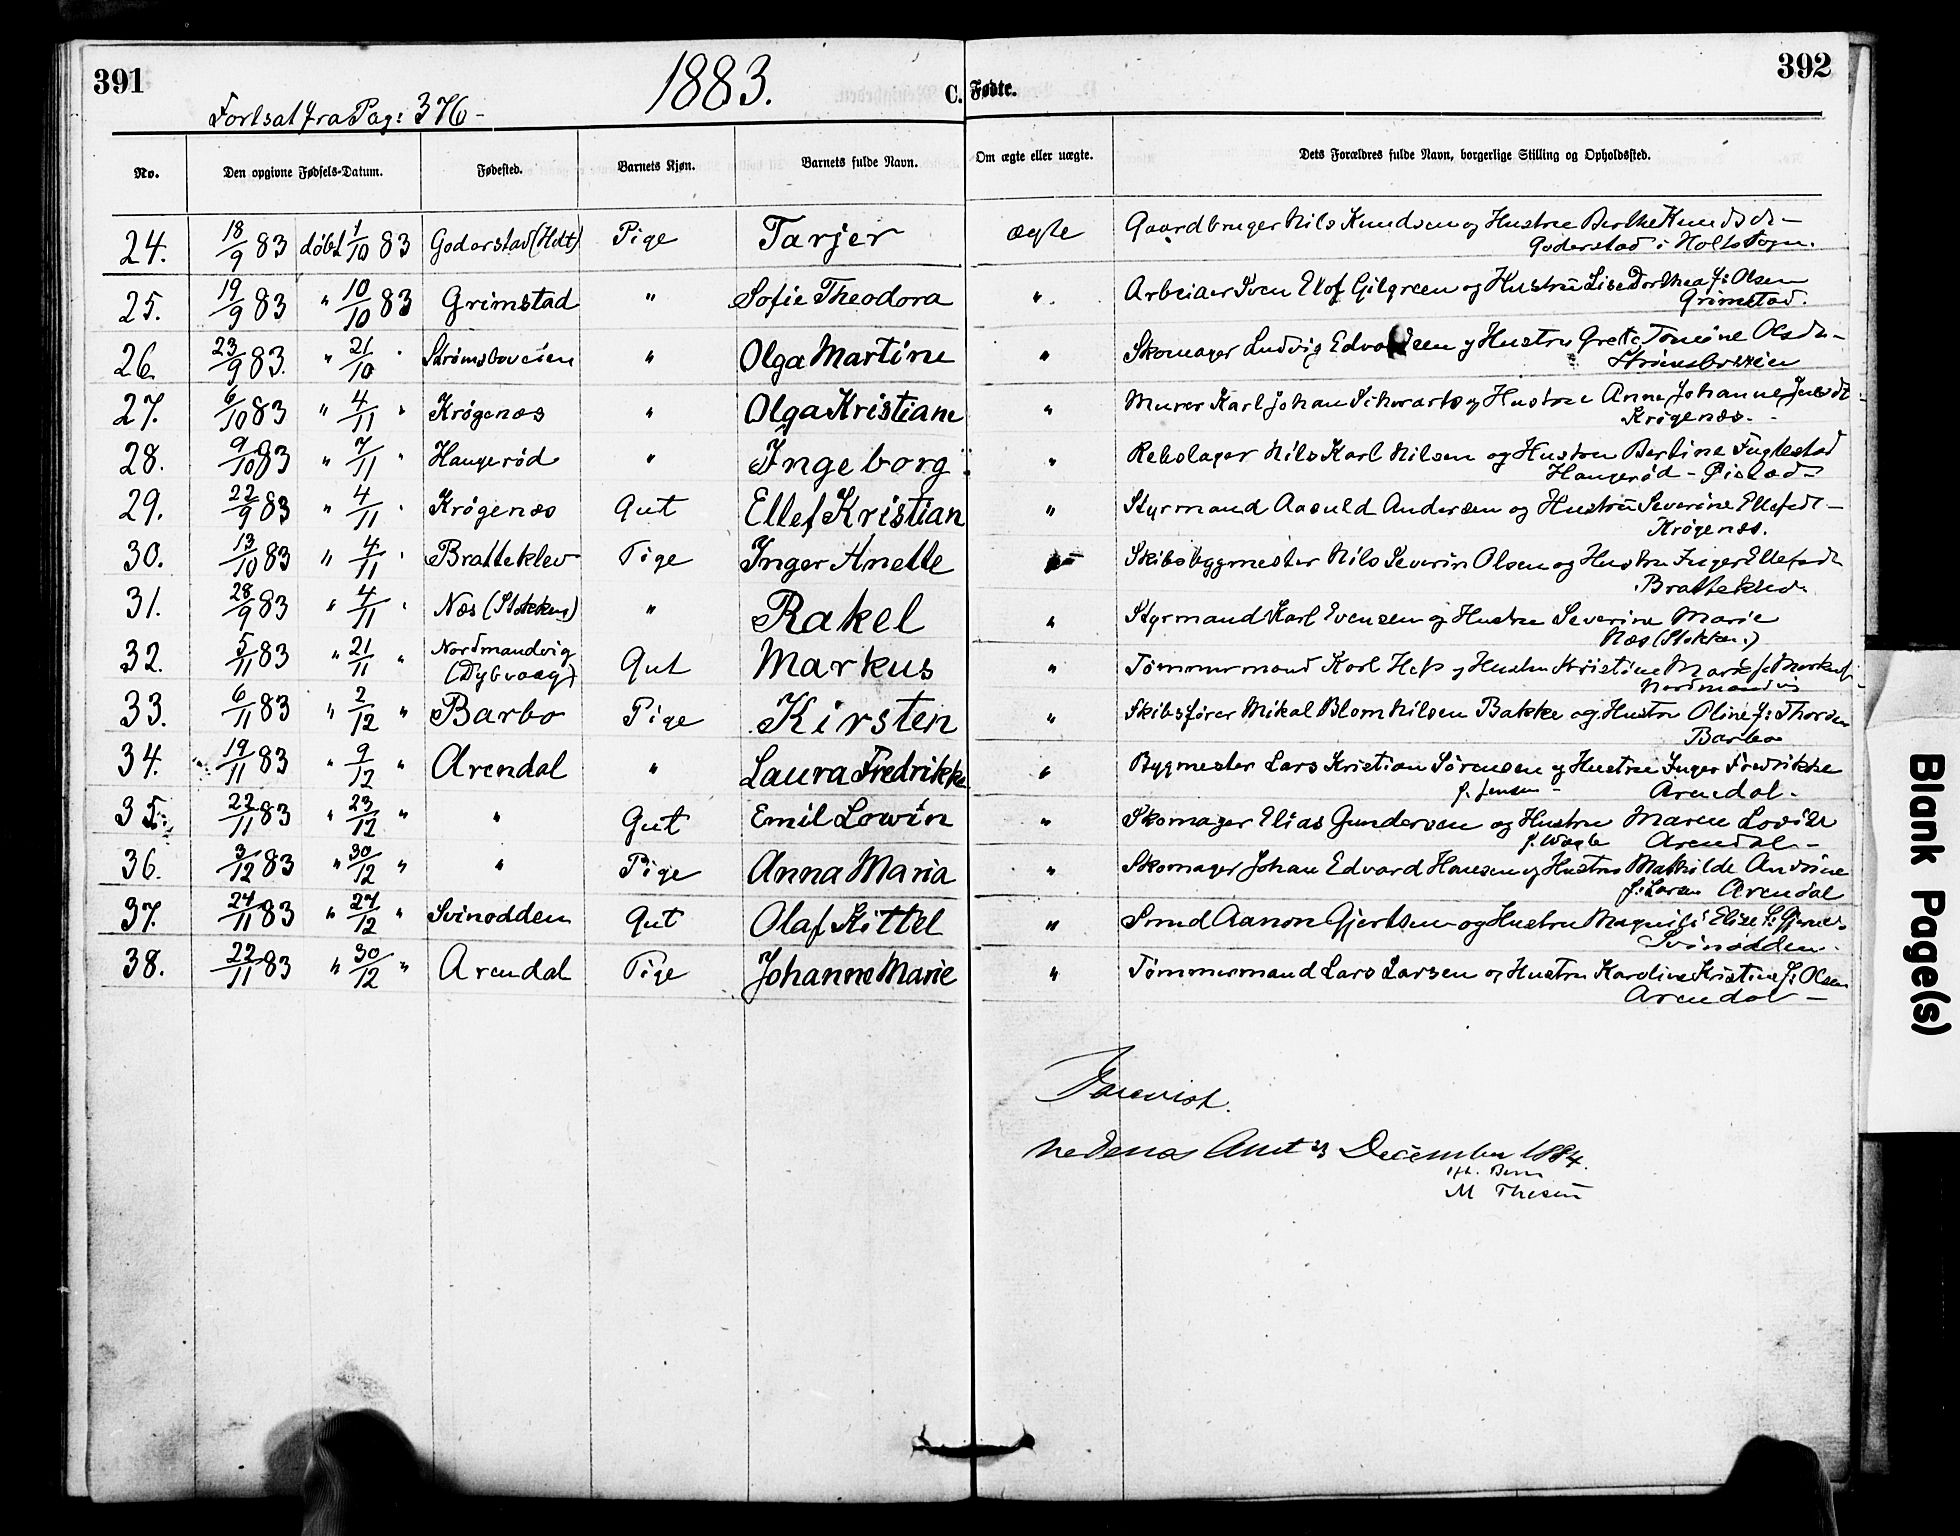 391
1883.
392
Fortsat fra Pag: 376-
C. Fødte.
No. Den opgivne Fødsels-Datum. Fødested. Barnets Kjøn. Barnets fulde Navn. Om ægte eller uægte. Dets Forældres fulde Navn, borgerlige Stilling og Opholdssted.
24. 18/9 83 døbt 1/10 83 Goderstad (Holt) Pige Tarjer ægte Gaardbruger Nils Knudsen og Hustru Berthe Knudsdt-
Goderstad i Holts Sogn.
25. 19/9 83 " 10/10 83 Grimstad " Sofie Theodora " Arbeider Sven Elof Gilgreen og Hustru Lise Dorthea f: Olsen
Grimstad.
26. 23/9 83. " 21/10 " Strømsboveien " Olga Martine " Skomager Ludvig Edvardsen og Hustru Grethe Tomine Olsdt-
Strømsboveien
27. 6/10 83 " 4/11 " Krøgenæs " Olga Kristiane " Murer Karl Johan og Hustru Anne Johanne
Krøgenæs.
28. 9/10 83 " 7/11 " Haugerød " Ingeborg " Rebslager Nils Karl Nilsen og Hustru Bertine Fuglestad
Haugerød - Øiestad-
29. 22/9 83 " 4/11 " Krøgenæs Gut Ellef Kristian " Styrmand Aasuld Andersen og Hustru Severine Ellefsdt-
Krøgenæs.
30. 13/10 83 " 4/11 " Bratteklev Pige Inger Anette " Skibsbygmester Nils Severin Olsen og Hustru Inger Ellefsdt
Bratteklev
31. 28/9 83 " 4/11 " Næs (Stokken) " Rakel " Styrmand Karl Evensen og Hustru Severine Marie
Næs (Stokken.)
32. 5/11 83 " 21/11 " Nordmandvig
(Dybvaag) Gut Markus " Tømmermand Karl og Hustru Kristine Marie f.
Nordmandvig
33. 6/11 83 " 2/12 " Barbo Pige Kirsten " Skibsfører Mikal Blom Nilsen Bakke og Hustru Oline f: Thorsen
Barbo
34. 19/11 83 " 9/12 " Arendal " Laura Fredrikke " Bygmester Lars Kristian Sørensen og Hustru Inger Fredrikke
f. Jensen - Arendal-
35. 22/11 83 " 23/12 " " Gut Emil Lowin " Skomager Elias Gundersen og Hustru Maren Lovise
f. Arendal-
36. 3/12 83 " 30/12 " " Pige Anna Maria " Skomager Johan Edvard Hansen og Hustru Mathilde Andrine
f: Larsen Arendal
37. 24/11 83 " 27/12 " Svinodden Gut Olaf Kittel " Smed Aanon Gjertsen og Hustru Magnild Elise
Svinodden-
38. 22/11 83 " 30/12 " Arendal Pige Johanne Marie " Tømmermand Lars Larsen og Hustru Karoline Kristine f: Olsen
Arendal-
Forevist.
Nedenæs Amt 23 December 1884.
M Thesen
Blank Page(s)